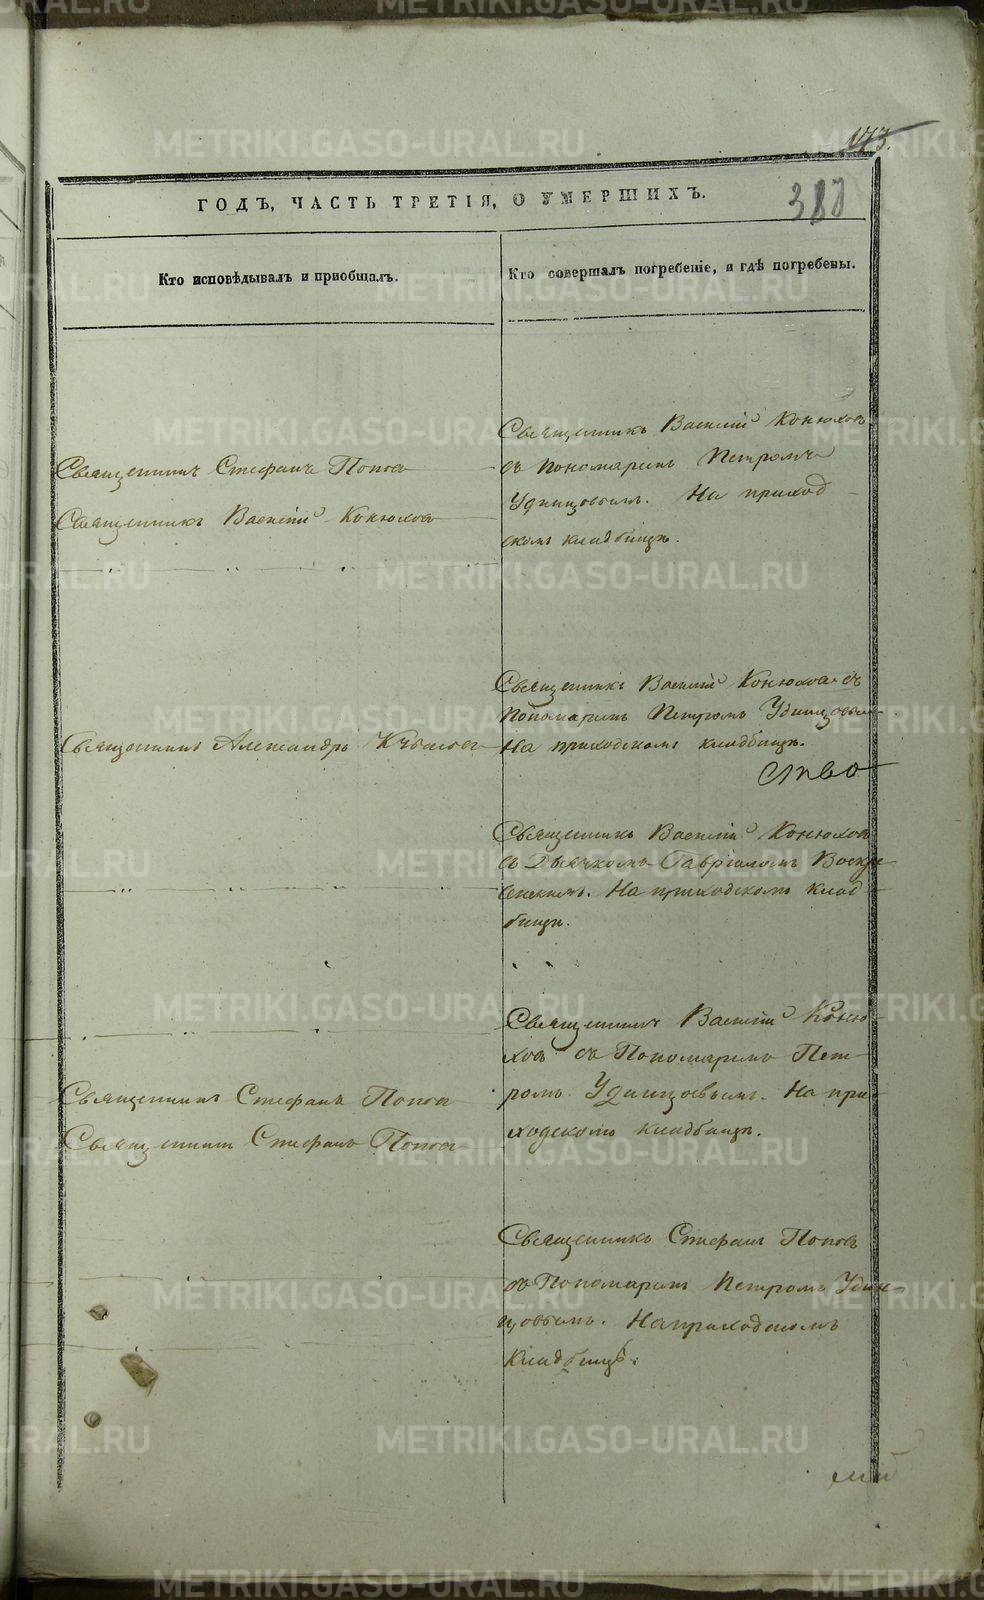 173.
380
ГОДЪ, ЧАСТЬ ТРЕТІЯ, О УМЕРШИХЪ.
Кто исповѣдывалъ и пріобщалъ.
Кто совершалъ погребеніе, и гдѣ погребены.
Священникъ Стефанъ Попов
Священникъ Василій Конюхов
Священникъ Василій Конюховъ
съ Пономаремъ Петромъ
Удинцовымъ. На приход
скомъ кладбищѣ.
Священникъ Александръ
Священникъ Василій Конюхов съ
Пономаремъ Петромъ Удинцовым
На приходскомъ кладбищѣ.
Священникъ Василій Конюхов
съ Дьячкомъ Гавріиломъ Воскре
сенскимъ. На приходскомъ клад
бищѣ.
Священникъ Стефанъ Попов
Священникъ Стефанъ Попов
Священникъ Василій Коню
ховъ съ Пономаремъ Пет
ромъ Удинцовымъ. На при
ходскомъ кладбищѣ.
Священникъ Стефанъ Попов
съ Пономаремъ Петромъ Удин
цовымъ. На приходскомъ
кладбищѣ.
METRIKI.GASO-URAL.RU